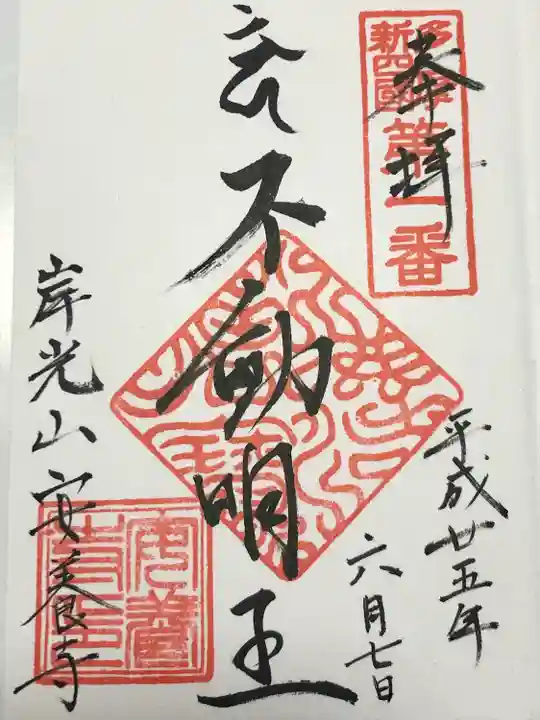 奉拝
多摩
新四國
第一番
平成廿五年
六月七日
不動明王
岸光山安養寺